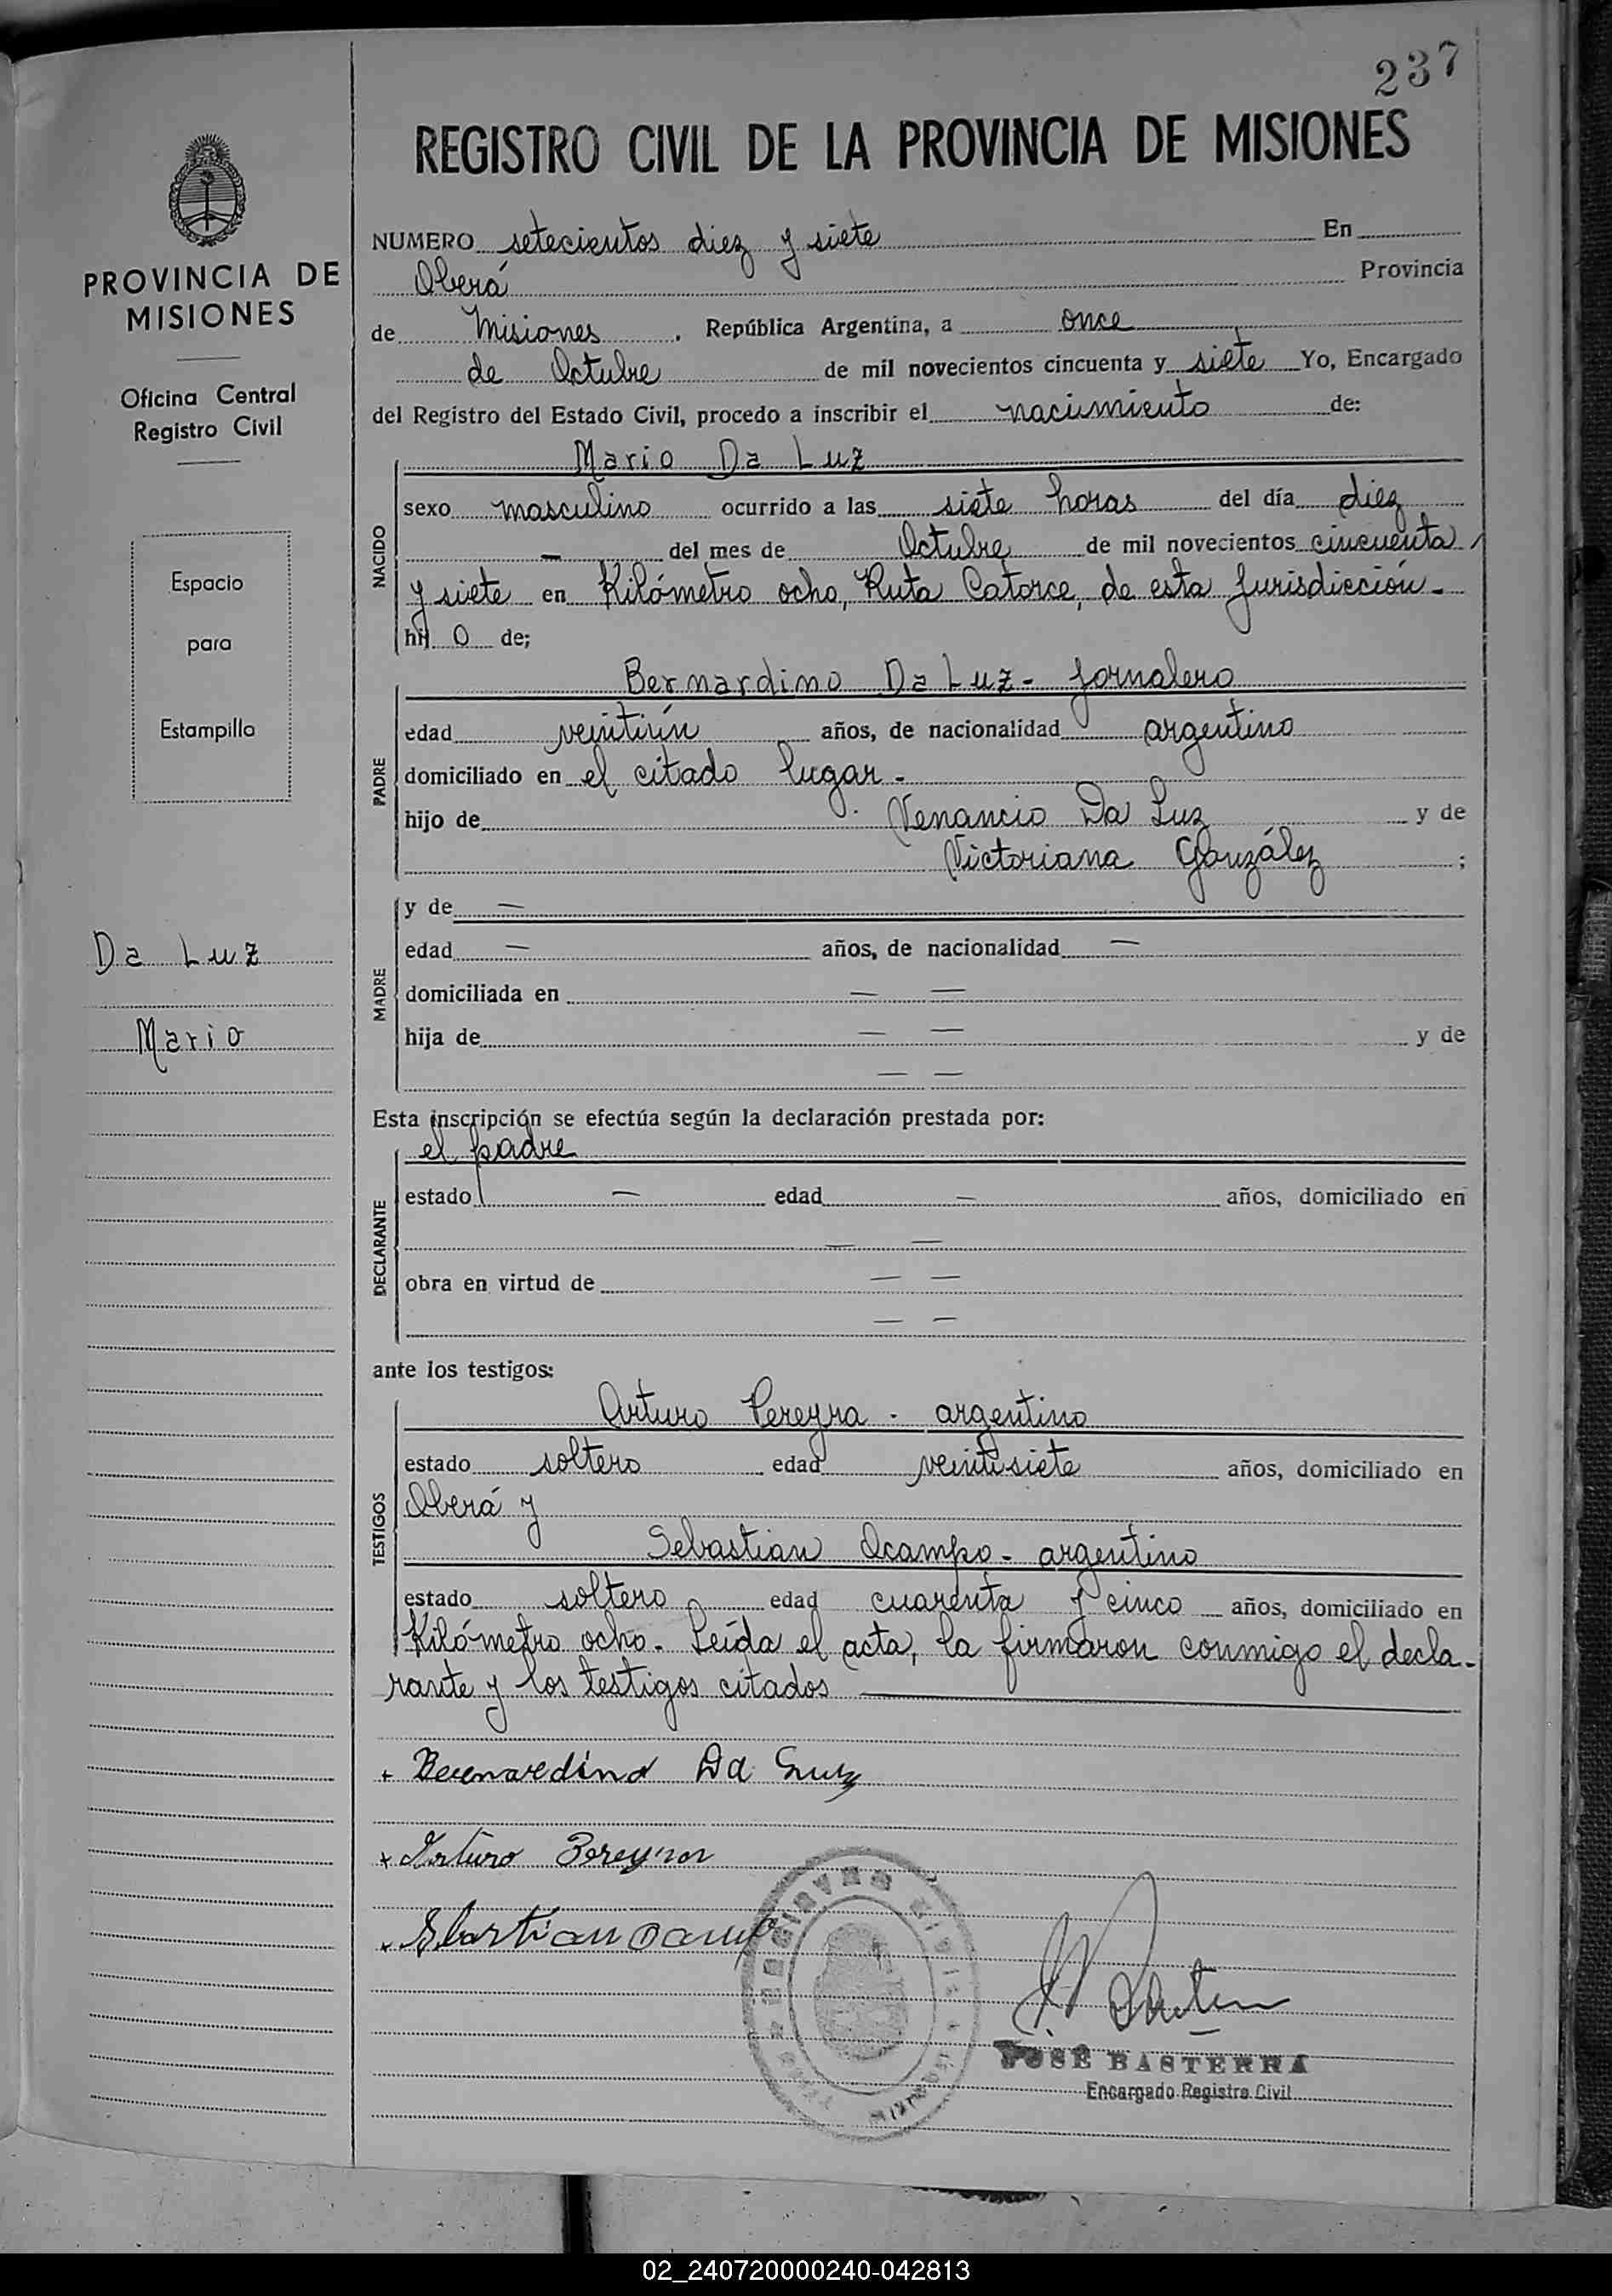 237
REGISTRO CIVIL DE LA PROVINCIA DE MISIONES
PROVINCIA DE
MISIONES
Oficina Central
Registro Civil
Espacio
para
Estampilla
Da Luz
Mario
NUMERO setecientos diez y siete En
Oberá Provincia
de Misiones. República Argentina, a once
de Octubre de mil novecientos cincuenta y siete Yo, Encargado
del Registro del Estado Civil, procedo a inscribir el nacimiento de:
NACIDO
Mario Da Luz
sexo masculino ocurrido a las siete horas del día diez
— del mes de Octubre de mil novecientos cincuenta
y siete en Kilómetro ocho, Ruta Catorce, de esta Jurisdicción-
hij o de;
PADRE
Bernardino Da Luz- Jornalero
edad veintiún años, de nacionalidad argentino
domiciliado en el citado lugar-
hijo de Venancio Da Luz y de
Victoriana González ;
MADRE
y de —
edad — años, de nacionalidad —
domiciliada en — —
hija de — — y de
— —
Esta inscripción se efectúa según la declaración prestada por:
DECLARANTE
el padre
estado — edad — años, domiciliado en
— —
obra en virtud de — —
— —
ante los testigos:
TESTIGOS
Arturo Pereyra - argentino
estado soltero edad veintisiete años, domiciliado en
Oberá y
Sebastian Ocampo- argentino
estado soltero edad cuarenta y cinco años, domiciliado en
Kilómetro ocho. Leída el acta, la firmaron conmigo el decla-
rante y los testigos citados
+ Bernardino Da Luz
x Arturo Pereyra
JOSÉ BASTERRA
Encargado Registro Civil
02_240720000240-042813